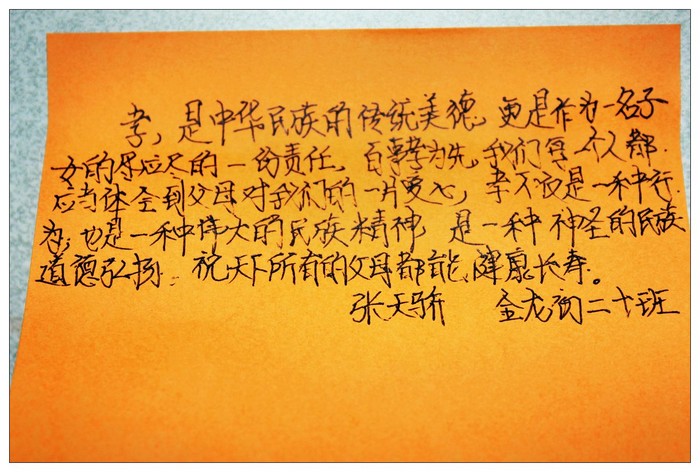 孝，是中华民族的传统美德，更是作为一名子
女的所应尽的一份责任，百事孝为先，我们每一个人都
应当体会到父母对我们的一片爱心，孝不仅是一种行
为，也是一种伟大的民族精神，是一种神圣的民族
道德弘扬。祝天下所有的父母都能健康长寿。
张天骄 金龙初二十班